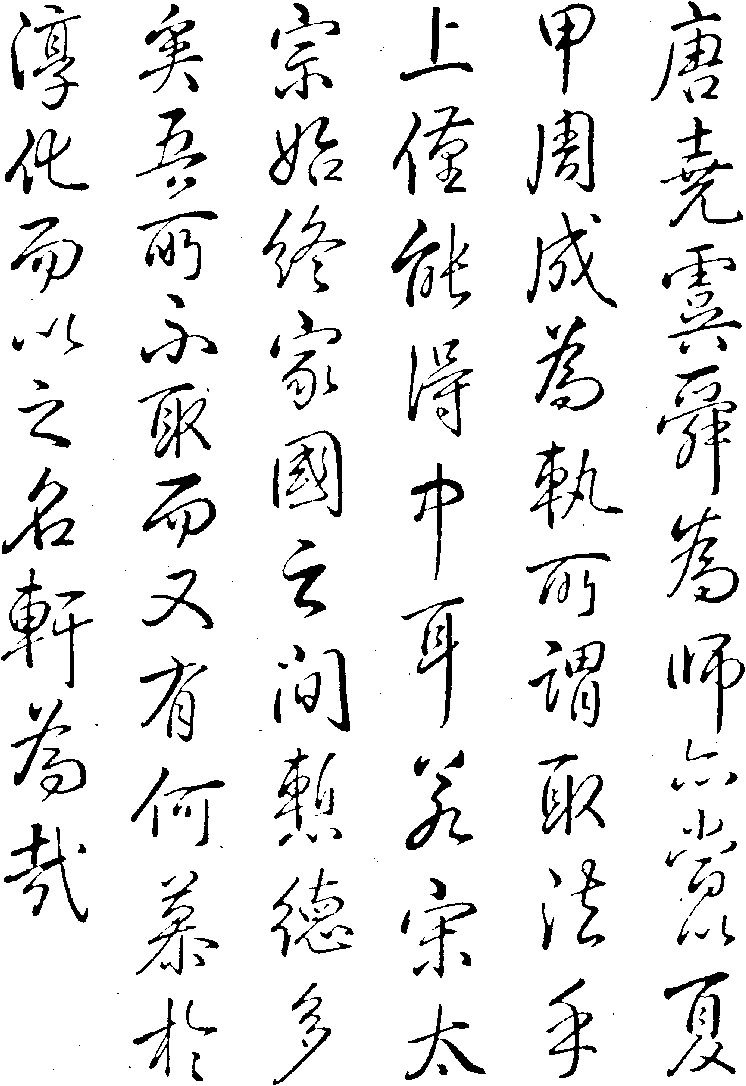 唐堯虞舜為師亦當以夏
甲周成為執所謂取法乎
上僅能得中耳若宋太
宗始終家國之間慙德多
矣吾所不取而又有何慕於
淳化而以之名軒為哉